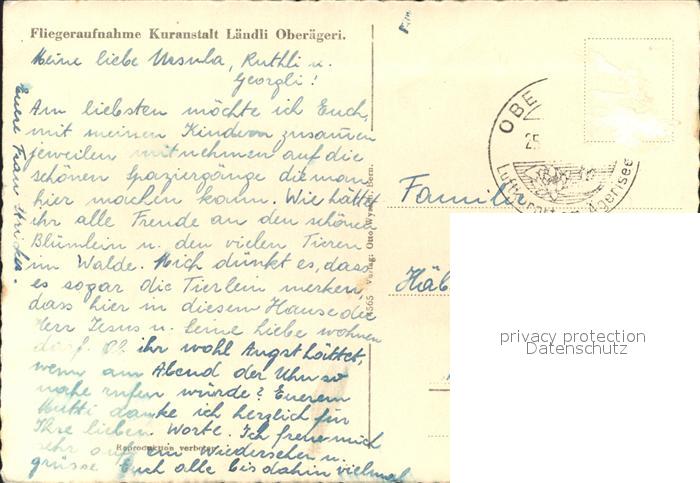 Fliegeraufnahme Kuranstalt Ländli Oberägeri.
Meine liebe Ursula, Ruthli u.
Georgli!
Am liebsten möchte ich Euch,
mit meinen Kindern zusammen
jeweilen mitnehmen auf die
schönen Spaziergänge die man
hier machen kann. Wie hättet
ihr alle Freude an den schönen
Blümlein u. den vielen Tieren
im Walde. Mich dünkt es, dass
es sogar die Tierlein merken,
dass hier in diesem Hause die
Herr Jesus u. seine Liebe wohnen
darf. Ob ihr wohl Angst hättet,
wenn am Abend der Uhu so
nahe rufen würde? Euerem
Mutti danke ich herzlich für
Ihre lieben Worte. Ich freue mich
sehr auf ein Wiedersehen u.
grüsse Euch alle bis dahin vielmal
Euere Frau
Reproduktion verboten
14565 Verlag: Otto Wyss, Bern.
OBE
25
Luftkurort am Ägerisee
Familie
Häb
privacy protection
Datenschutz